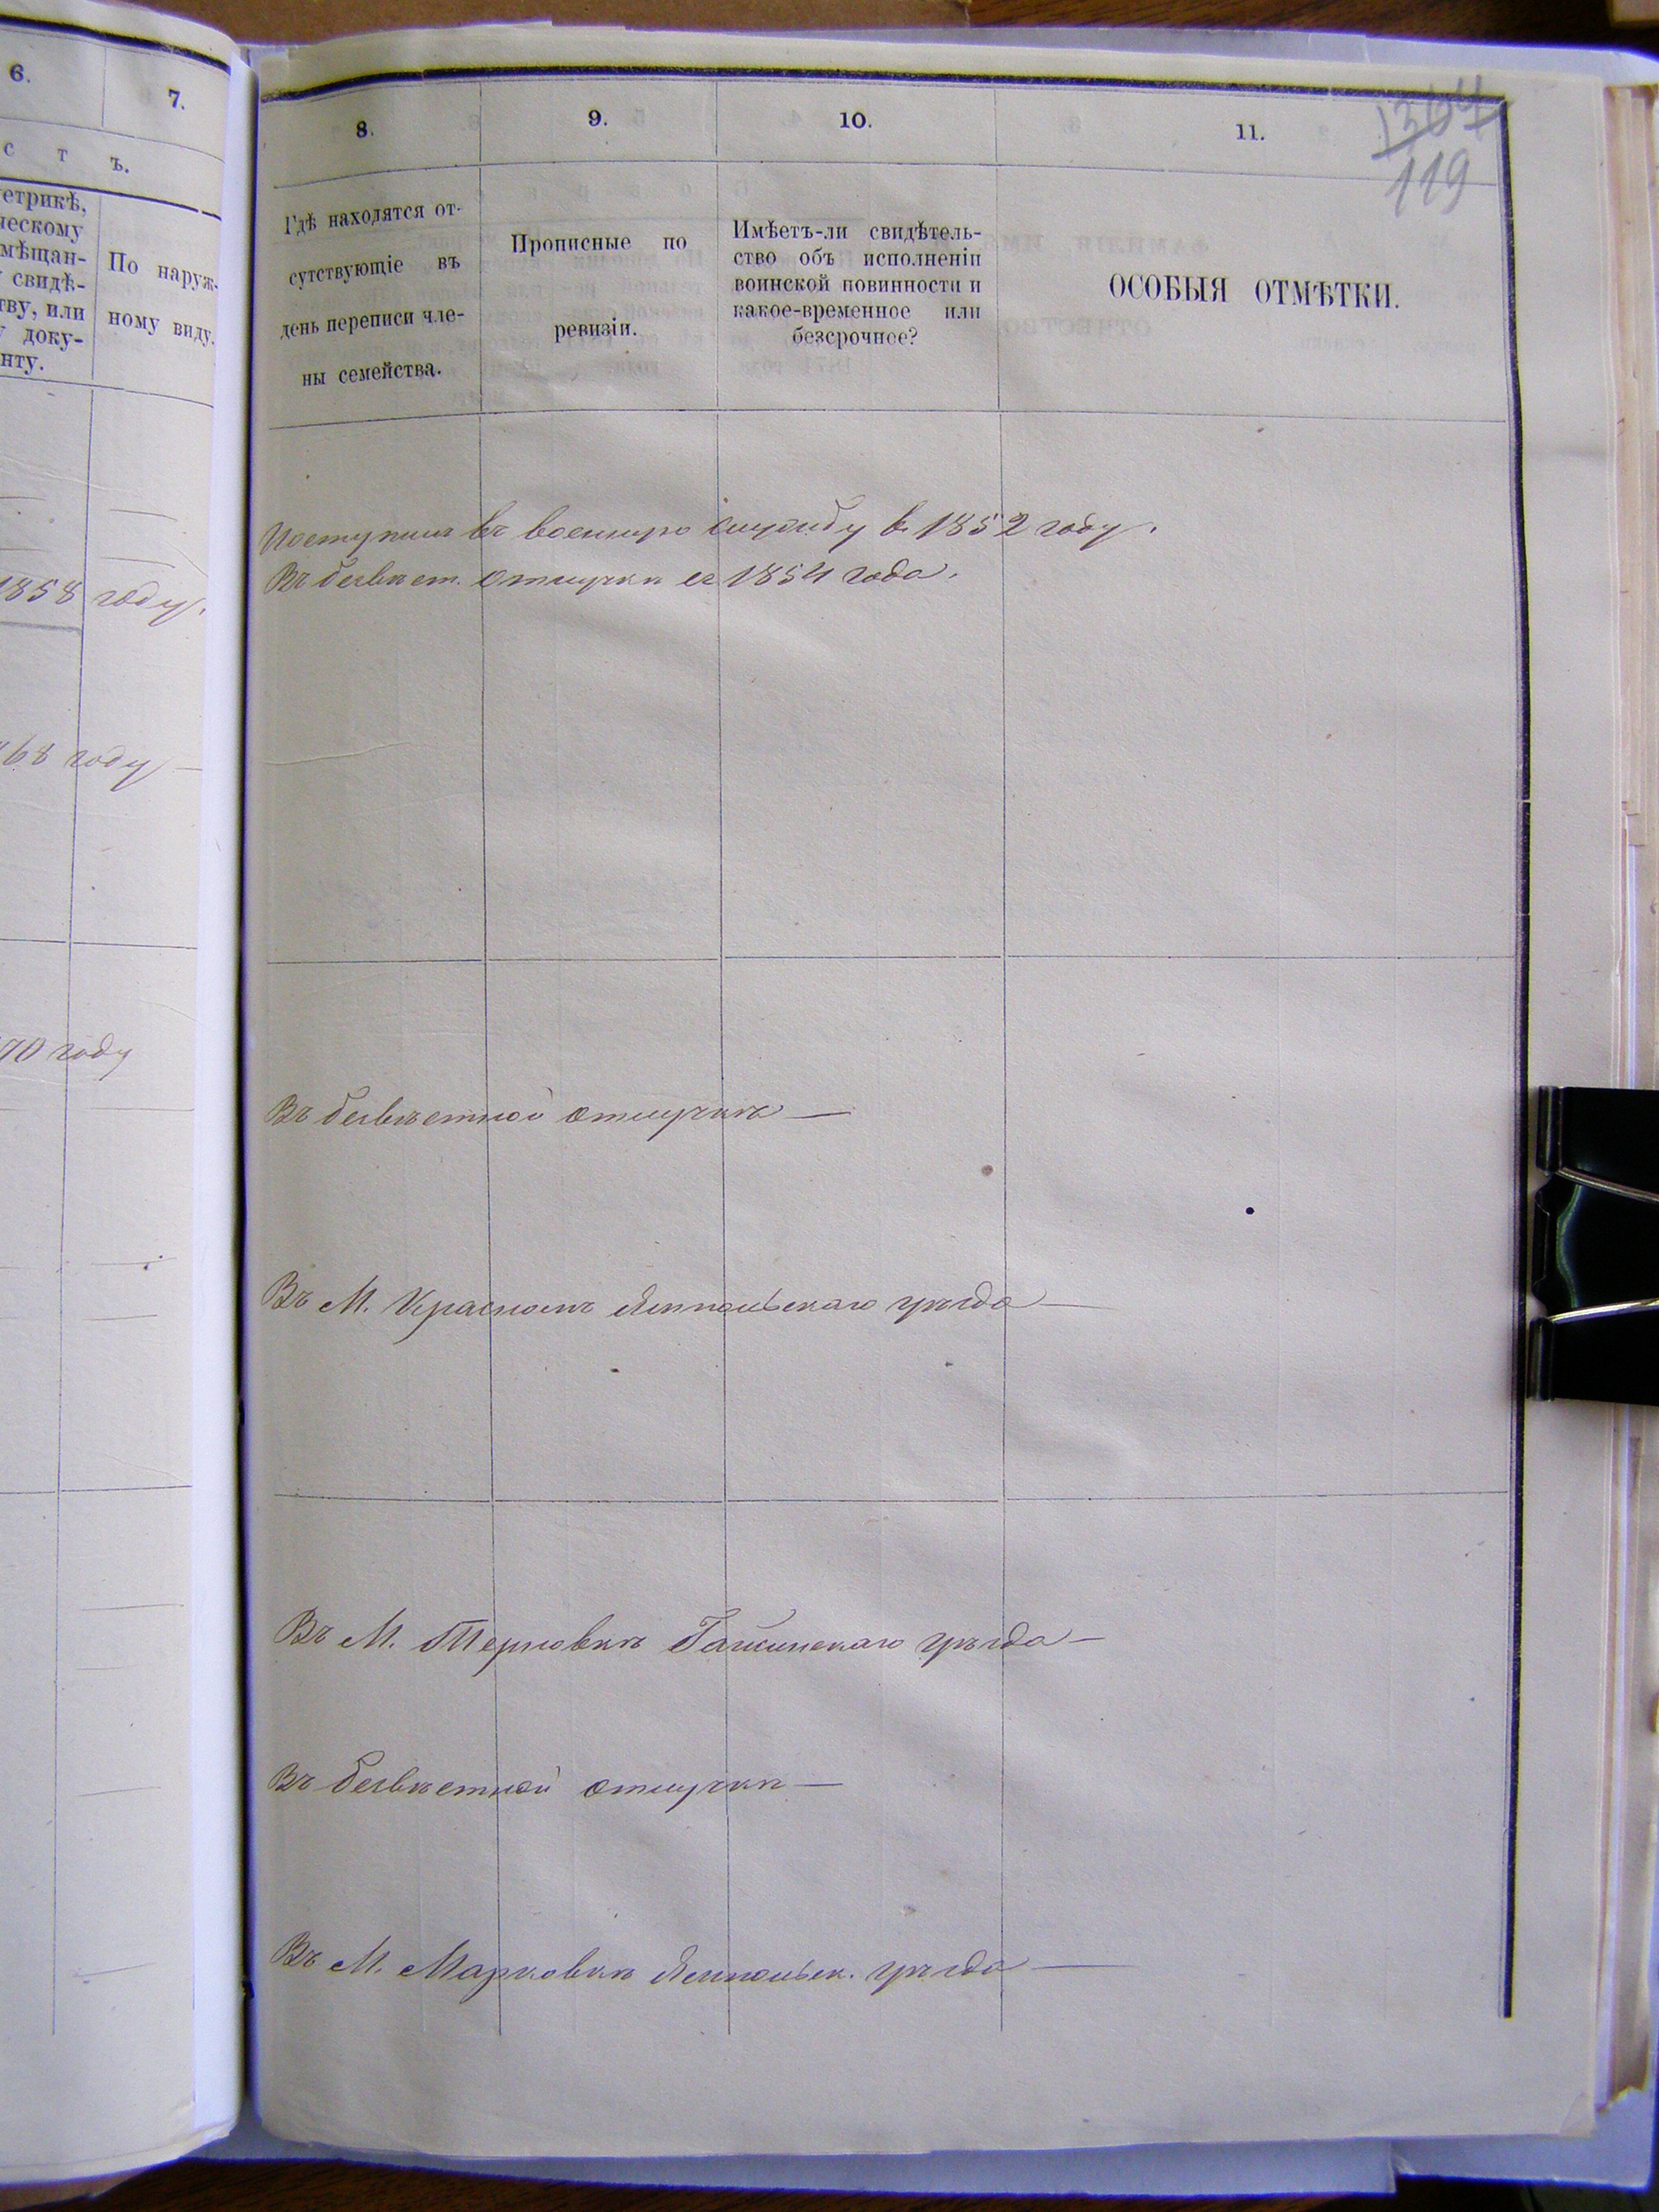 6.
7.
с т ъ.
етрикѣ,
ческому
мѣщан-
свидѣ-
тву, или
доку-
нту.
По наруж-
ному виду.
1858 году.
68 году
70 году
8.
9.
10.
11.
119
Гдѣ находятся от-
сутствующіе въ
день переписи чле-
ны семейства.
Прописные по
ревизіи.
Имѣетъ-ли свидѣтель-
ство объ исполненіи
воинской повинности и
какое-временное или
безсрочное?
ОСОБЫЯ ОТМѢТКИ.
Поступилъ въ военную службу в 1852 году.
Въ безвѣст. отлучкѣ съ 1854 года.
Въ безвѣстной отлучкѣ —
Въ М. Красномъ Ямпольскаго уѣзда —
Въ М. Терновкѣ Гайсинскаго уѣзда —
Въ безвѣстной отлучкѣ —
Въ М. Марковкѣ Ямпольск. уѣзда —